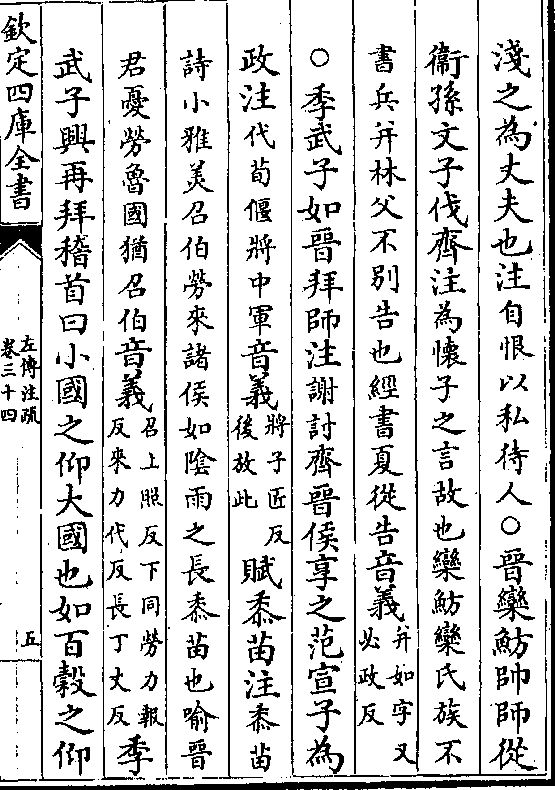 淺之為丈夫也注自恨以私待人○晉欒魴帥師從
衞孫文子伐齊注為懷子之言故也欒魴欒氏族不
書兵并林父不別告也經書夏從告音義并如字又必政反
○季武子如晉拜師注謝討齊晉侯享之范宣子為
政注代荀偃將中軍音義將子匠反後放此賦黍苗注黍苗
詩小雅美召伯勞來諸侯如陰雨之長黍苗也喻晉
君憂勞魯國猶召伯音義召上照反下同勞力報反來力代反長丁丈反季
武子興再拜稽首曰小國之仰大國也如百穀之仰
欽定四庫全書
左傳注疏
卷三十四
五